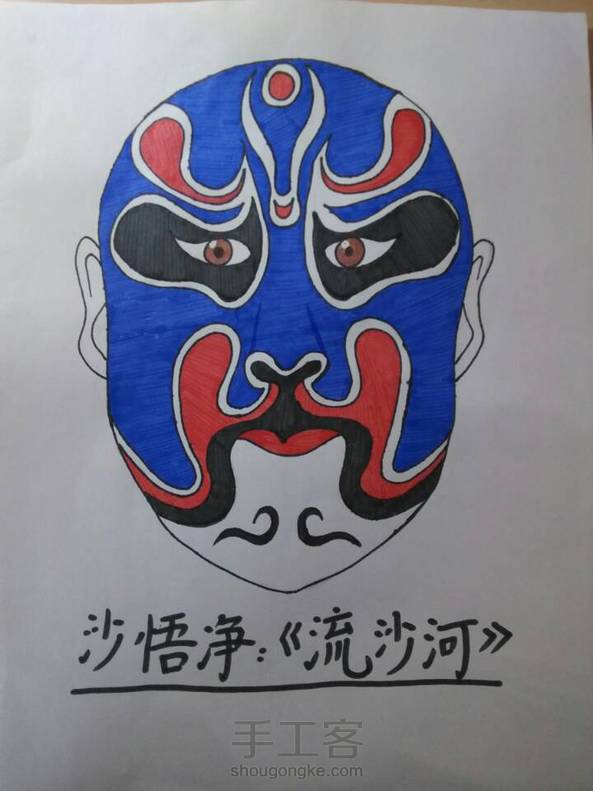 沙悟净：《流沙河》
手工客
shougongke.com